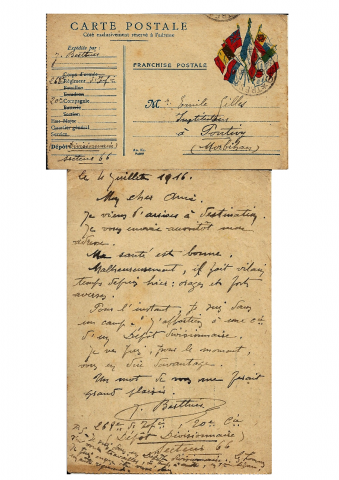 CARTE POSTALE
Côté exclusivement réservé à l'adresse
Expédiée par
J. Berthier
FRANCHISE POSTALE
Corps d'armée
268e Régiment d'Inf.
Bataillon
Escadron
20e Compagnie
Batterie
Section
Mr Emile Gilles
Instituteur
à Pontivy
(Morbihan)
Dépôt divisionnaire
Secteur 66
le 4 juillet 1916.
Mon cher Ami.
Je viens d'arriver à destination.
Je vous envoie aussitôt mon
adresse.
Ma santé est bonne.
Malheureusement, il fait vilain
temps depuis hier : orages et fortes
averses.
Pour l'instant je suis dans
un camp : j'appartiens à une Cie
d'un Dépôt divisionnaire.
Je ne puis, pour le moment,
vous en dire davantage.
Un mot de vous me ferait
grand plaisir.
J. Berthier
268e d'Inf., 20e Cie
(Dépôt Divisionnaire)
Secteur 66